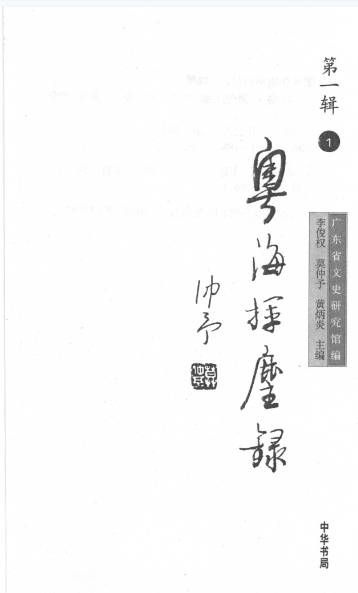 第一辑
1
广东省文史研究馆编
李俊权 莫仲予 黄炳炎 主编
粵海揮麈録
仲予
中华书局